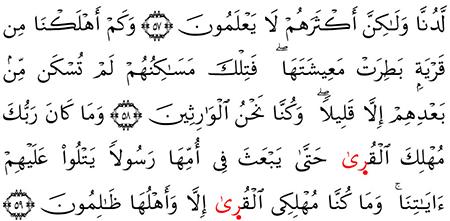 لَّدُنَّا وَلَـٰكِنَّ أَكْثَرَهُمْ لَا يَعْلَمُونَ ٥٧ وَكَمْ أَهْلَكْنَا مِن
قَرْيَةٍۭ بَطِرَتْ مَعِيشَتَهَا ۖ فَتِلْكَ مَسَـٰكِنُهُمْ لَمْ تُسْكَن مِّنۢ
بَعْدِهِمْ إِلَّا قَلِيلًا ۖ وَكُنَّا نَحْنُ الْوَٰرِثِينَ ٥٨ وَمَا كَانَ رَبُّكَ
مُهْلِكَ الْقُرِىٰ حَتَّىٰ يَبْعَثَ فِى أُمِّهَا رَسُولًا يَتْلُوا۟ عَلَيْهِمْ
ءَايَـٰتِنَا ۚ وَمَا كُنَّا مُهْلِكِى الْقُرِىٰ إِلَّا وَأَهْلُهَا ظَـٰلِمُونَ ٥٩